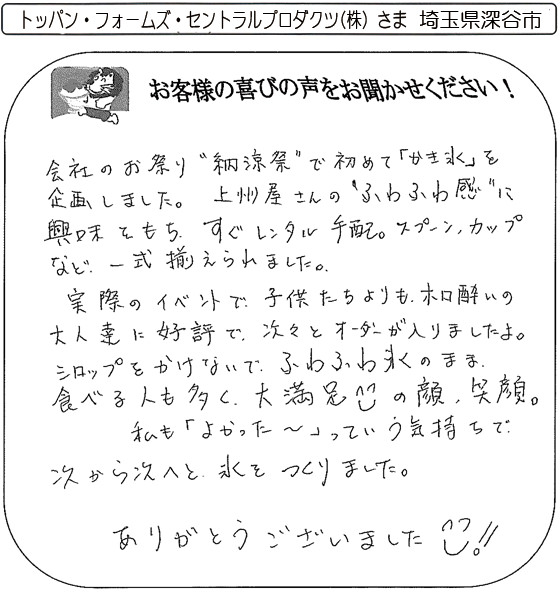 トッパン・フォームズ・セントラルプロダクツ(株) さま 埼玉県深谷市
お客様の喜びの声をお聞かせください!
会社のお祭り“納涼祭”で初めて「かき氷」を
企画しました。 上州屋さんの“ふわふわ感”に
興味をもち、すぐレンタル手配。スプーン、カップ
など、一式揃えられました。
実際のイベントで、子供たちよりも、ホロ酔いの
大人達に好評で、次々とオーダーが入りましたよ。
シロップをかけないで、ふわふわ氷のまま、
食べる人も多く、大満足の顔、笑顔。
私も「よかった〜」っていう気持ちで
次から次へと、氷をつくりました。
ありがとうございました!!